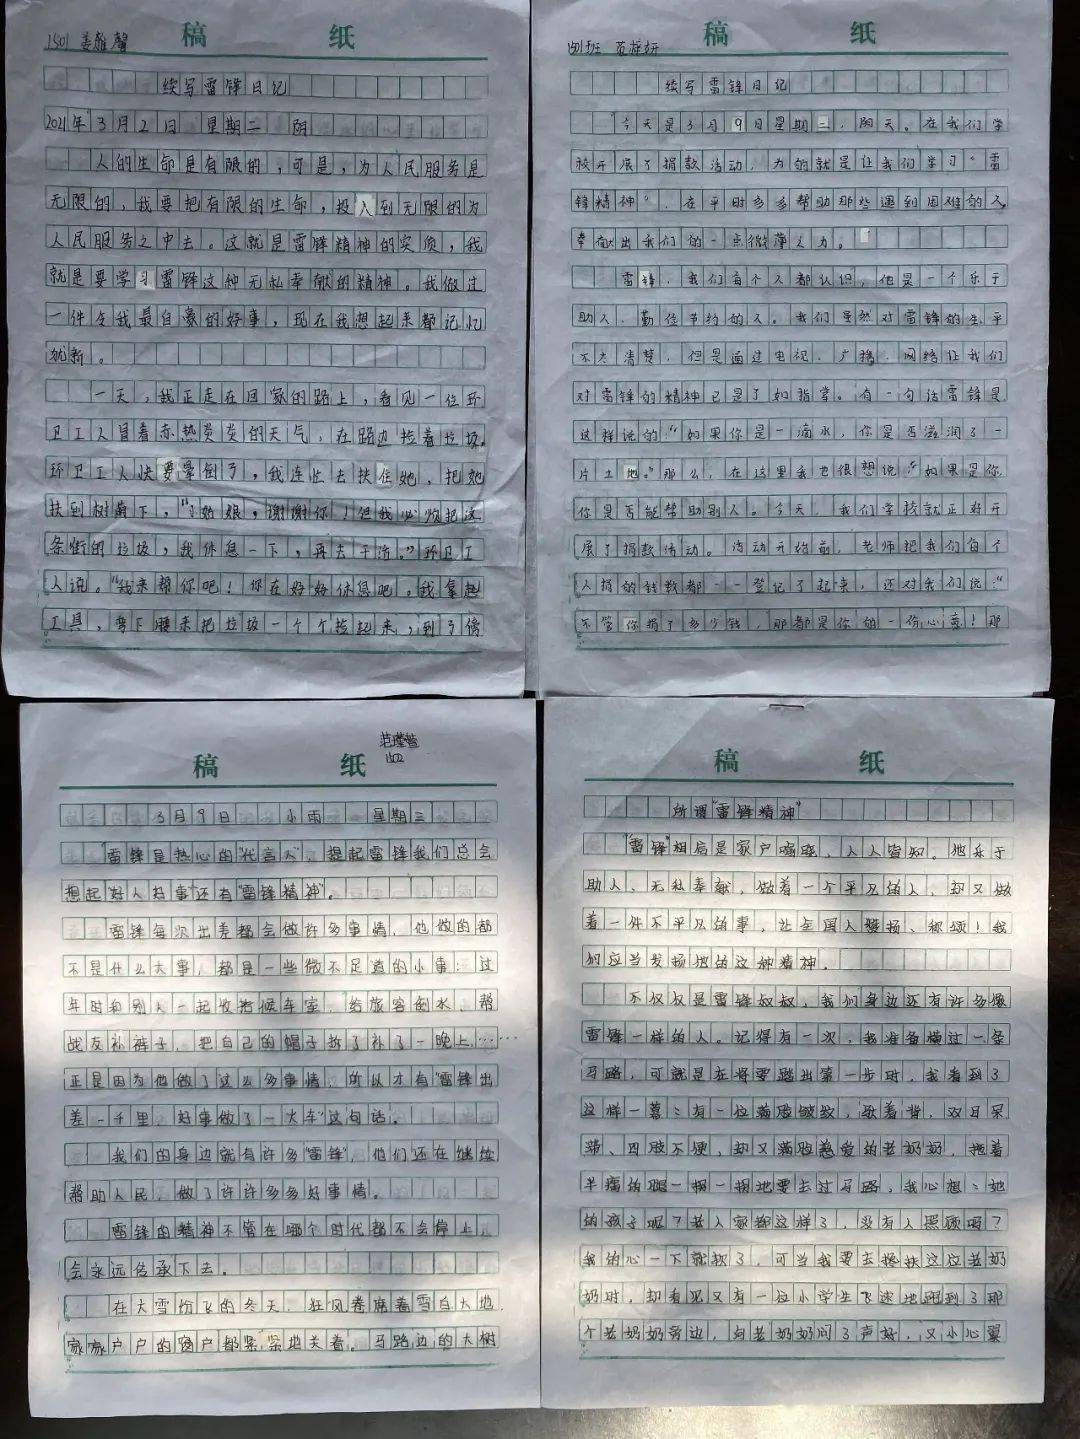 稿 纸
1501 姜雅馨
续写雷锋日记
2021年3月2日 星期二 阴
人的生命是有限的，可是，为人民服务是
无限的，我要把有限的生命，投入到无限的为
人民服务之中去。这就是雷锋精神的实质，我
就是要学习雷锋这种无私奉献的精神。我做过
一件令我最自豪的好事，现在我想起来都记忆
犹新。
一天，我正走在回家的路上，看见一位环
卫工人冒着赤热炎炎的天气，在路边捡着垃圾。
环卫工人快要晕倒了，我连忙去扶住她，把她
扶到树荫下，“小姑娘，谢谢你！但我必须把这
条街的垃圾，我休息一下，再去干活。”环卫工
人说。“我来帮你吧！你在好好休息吧。我拿起
工具，弯下腰来把垃圾一个个捡起来，到了傍
稿 纸
1501班
续写雷锋日记
今天是3月9日星期二，阴天。在我们学
校开展了捐款活动，为的就是让我们学习“雷
锋精神”，在平时多多帮助那些遇到困难的人，
奉献出我们的一点微薄人力。
雷锋，我们每个人都认识，他是一个乐于
助人、勤俭节约的人。我们虽然对雷锋的生平
不太清楚，但是通过电视、广播、网络让我们
对雷锋的精神已是了如指掌。有一句话雷锋是
这样说的：“如果你是一滴水，你是否滋润了一
片土地。”那么，在这里我也很想说：“如果是你
你是否能帮助别人。今天，我们学校就正好开
展了捐款活动。活动开始前，老师把我们每个
人捐的钱数都一一登记了起来，还对我们说：“
不管你捐了多少钱，那都是你的一份心意！那
稿 纸
范瑾萱
1502
3月9日 小雨 星期三
“雷锋是热心的“代言人”，提起雷锋我们总会
想起“好人好事”还有“雷锋精神”。
雷锋每次出差都会做许多事情，他做的都
不是什么大事，都是一些微不足道的小事：过
年时和别人一起收拾候车室、给旅客倒水、帮
战友补裤子、把自己的帽子拆了补了一晚上……
正是因为他做了这么多事情，所以才有“雷锋出
差一千里，好事做了一火车”这句话。
我们的身边就有许多“雷锋”，他们还在继续
帮助人民，做了许许多多好事情。
雷锋的精神不管在哪个时代都不会停止，
会永远传承下去。
在大雪纷飞的冬天，狂风卷席着雪白大地，
家家户户的窗户都紧紧地关着。马路边的大树
稿 纸
所谓“雷锋精神”
“雷锋”相信是家户喻晓，人人皆知。他乐于
助人、无私奉献，做着一个平凡的人，却又做
着一件不平凡的事，让全国人赞扬、称颂！我
们应当发扬他的这种精神。
不仅仅是雷锋叔叔，我们身边还有许多像
雷锋一样的人。记得有一次，我准备横过一条
马路，可就是在将要踏出第一步时，我看到了
这样一幕：有一位满脸皱纹，驼着背，双目呆
滞、四肢不便，却又满脸慈爱的老奶奶，拖着
半瘸的腿一拐一拐地要去过马路，我心想：她
的孩子呢？老人家都这样了，没有人照顾吗？
我的心一下就软了，可当我要去搀扶这位老奶
奶时，却看见又有一位小学生飞速地跑到了那
个老奶奶旁边，向老奶奶问了声好，又小心翼